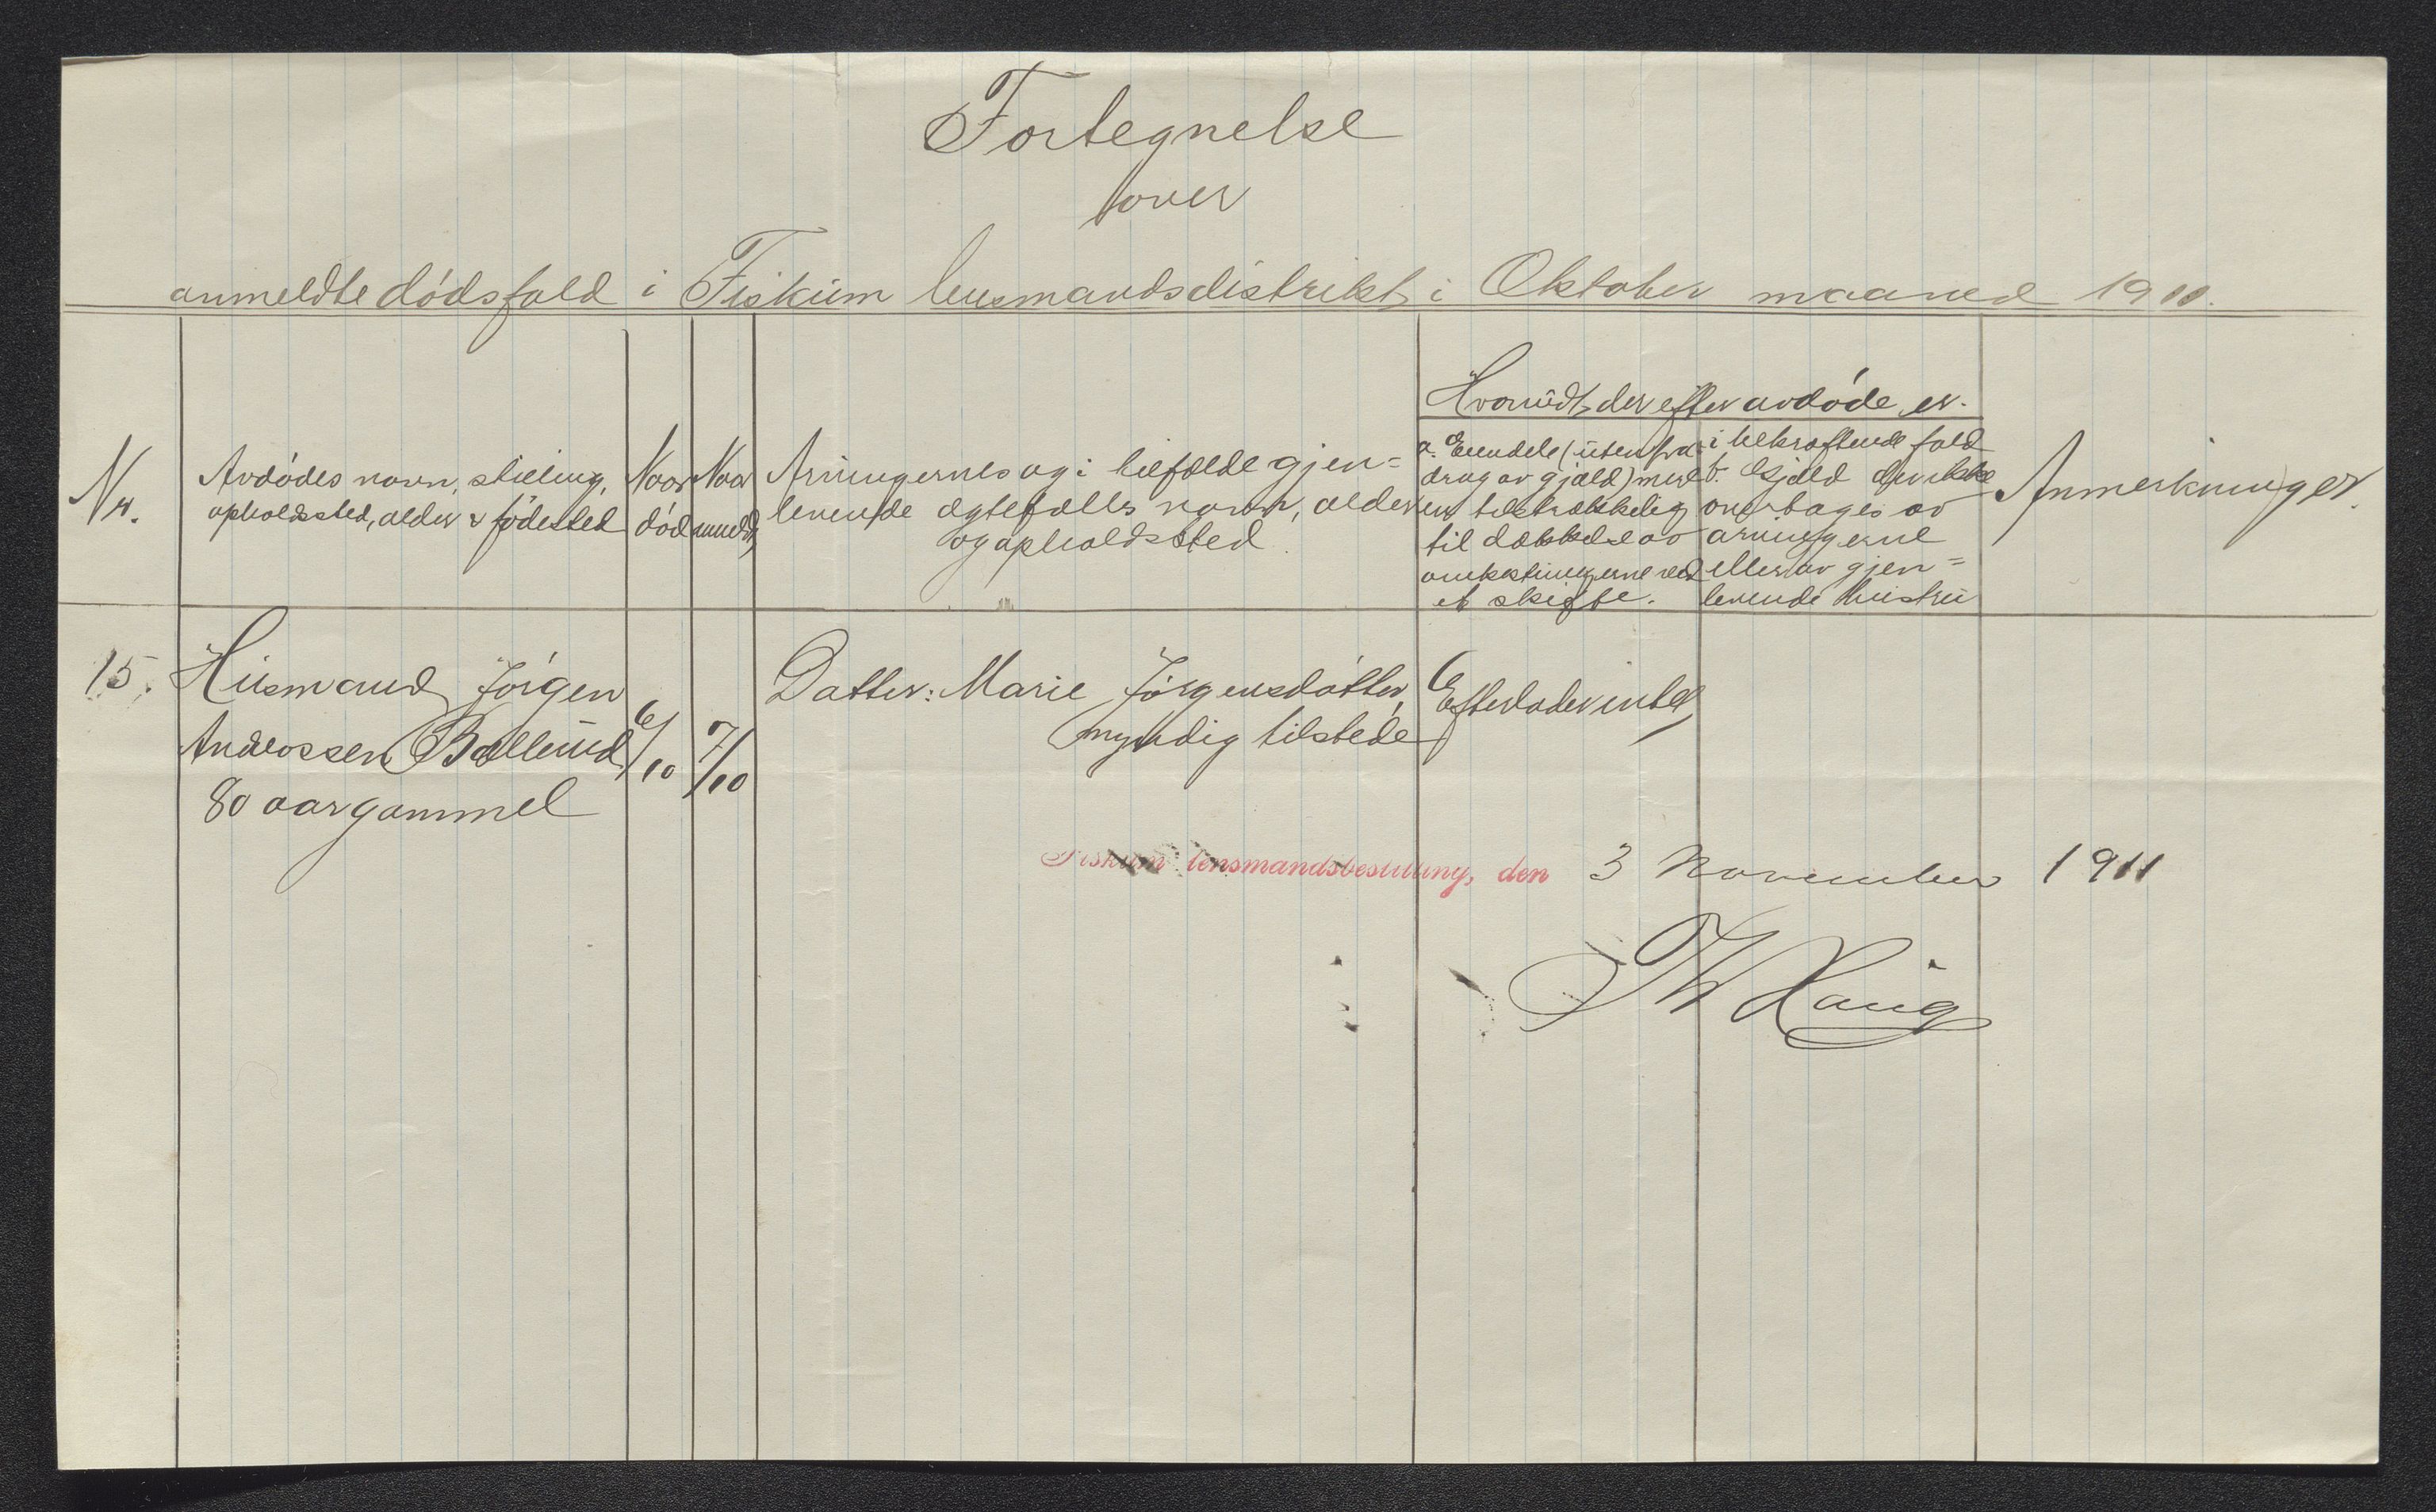 Fortegnelse
over
anmeldte dødsfald i Fiskum lensmandsdistrikt i Oktober maaned 1911.
Nr.
Avdødes navn, stilling,
opholdssted, alder & fødested
Naar
død
Naar
anmeldt
Arvingernes og i tilfælde gjen=
levende ægtefælls navn, alder
og opholdssted
Hvorvidt der efter avdøde er.
a. Eiendele (uten fra-
drag av gjæld) mere
en tilstrækkelig
til dækkelse av
omkostningerne ved
et skifte.
i bekræftende fald
b. Gjæld der ikke
overtages av
arvingerne
eller av gjen=
levende hustru
Anmerkninger.
15.
Husmand Jørgen
Anderssen Bollerud
80 aar gammel
6/10
7/10
Datter: Marie Jørgensdatter,
myndig tilstede
Efterlader intet
Fiskum lensmandsbestilling, den 3 November 1911
Th Haug